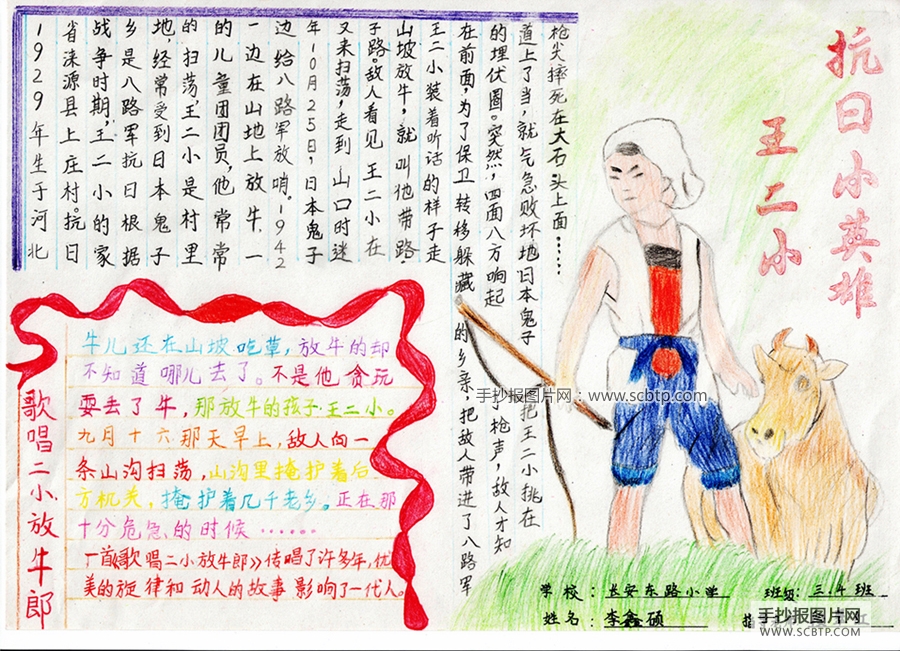 抗日小英雄
王二小
1929年生于河北
省涞源县上庄村。抗日
战争时期,王二小的家
乡是八路军抗日根据
地,经常受到日本鬼子
的扫荡,王二小是村里
的儿童团团员,他常常
一边在山地上放牛,一
边给八路军放哨。1942
年10月25日,日本鬼子
又来扫荡,走到山口时迷
子路。敌人看见王二小在
山坡放牛,就叫他带路。
王二小装着听话的样子走
在前面,为了保卫转移躲藏。的乡亲,把敌人带进了八路军
的埋伏圈。突然,四面八方响起了枪声,敌人才知
道上了当,就气急败坏地日本鬼子把王二小挑在
枪尖摔死在大石头上面……
歌唱二小放牛郎
牛儿还在山坡吃草,放牛的却
不知道哪儿去了。不是他贪玩
耍丢了牛,那放牛的孩子王二小。
九月十六那天早上,敌人向一
条山沟扫荡,山沟里掩护着后
方机关,掩护着几千老乡。正在那
十分危急的时候……
一首《歌唱二小放牛郎》传唱了许多年,优
美的旋律和动人的故事影响了一代人。
手抄报图片网:www.scbtp.com
学校:长安东路小学 班级:三.4班
姓名:李鑫硕
手抄报图片网
WWW.SCBTP.COM